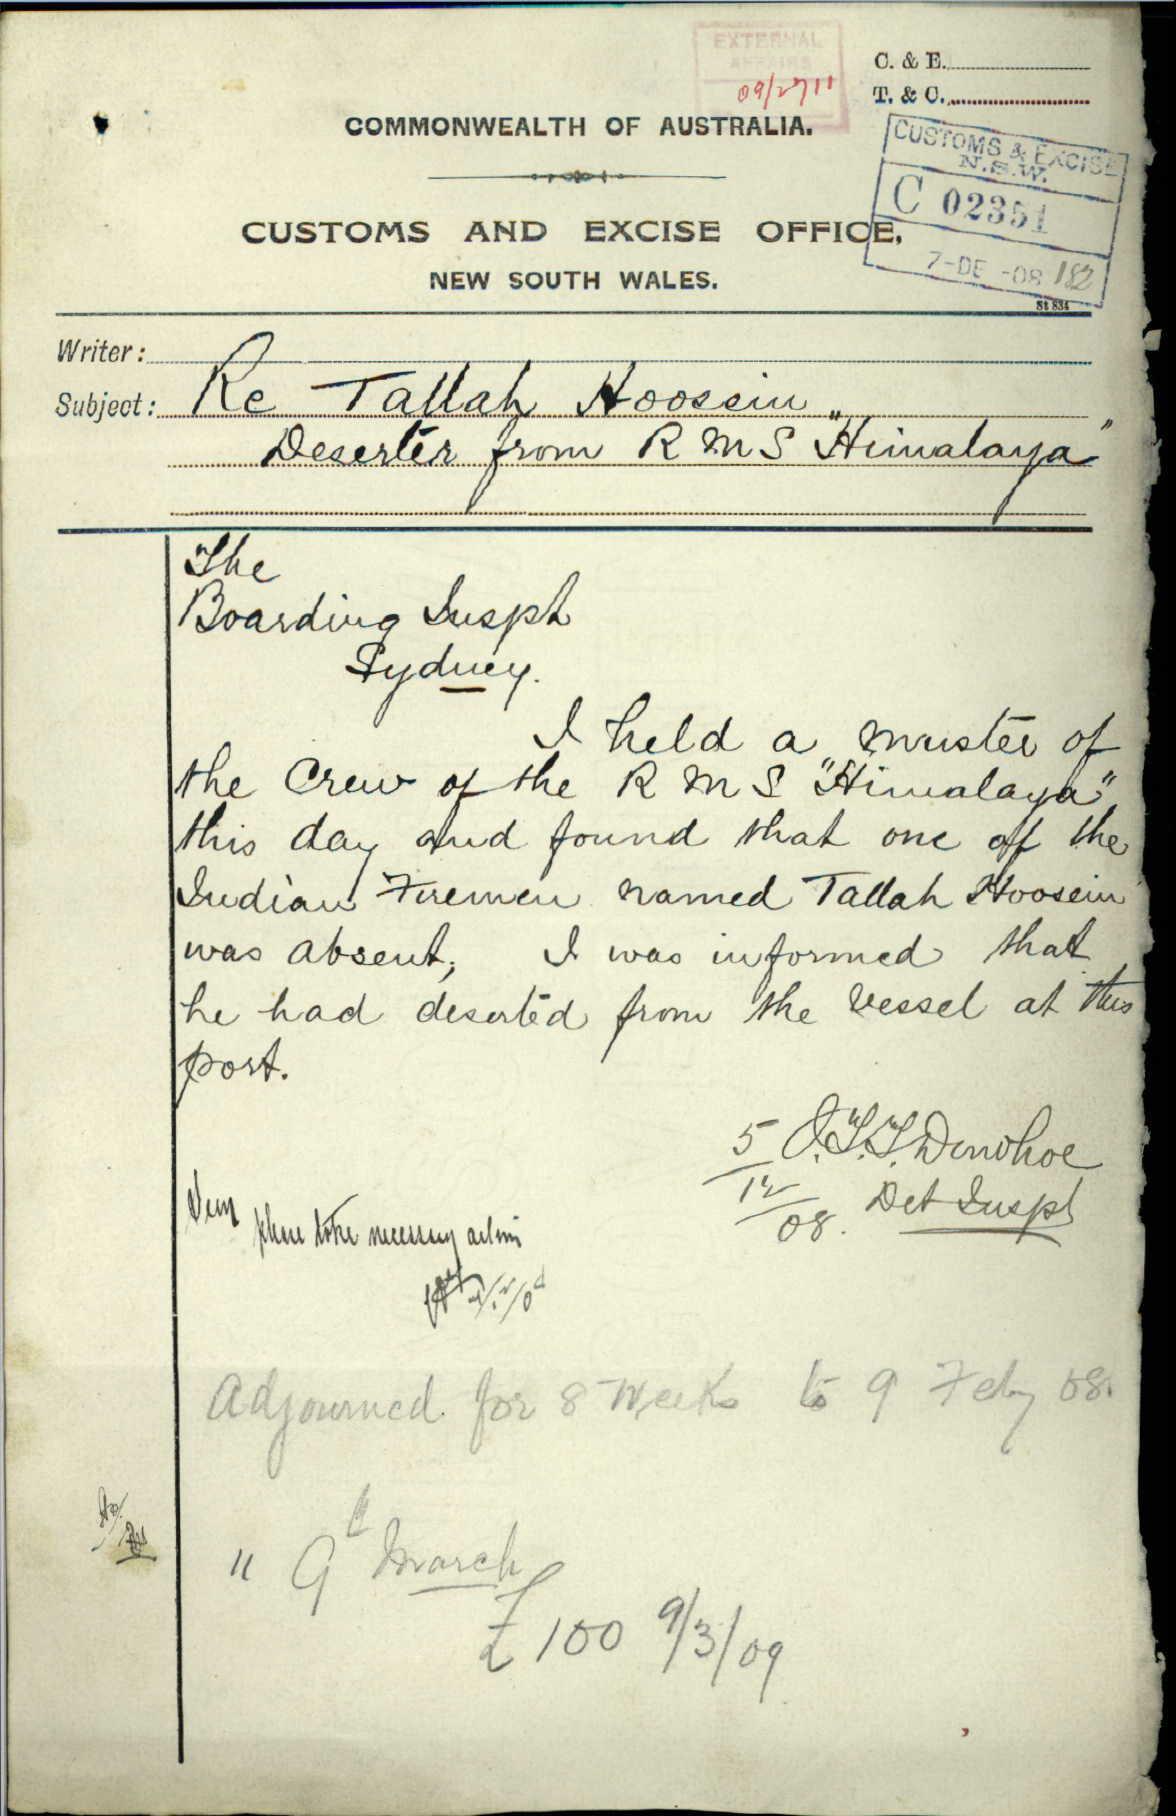 EXTERNAL
AFFAIRS
09/2711
C. & E.
T. & C.
COMMONWEALTH OF AUSTRALIA.
CUSTOMS & EXCISE
N.S.W.
C 02351
7-DE-08 182
CUSTOMS AND EXCISE OFFICE,
NEW SOUTH WALES.
St 834
Writer:
Subject: Re Tallah Hoosein
Deserter from R M S "Himalaya"
The
Boarding Inspt
Sydney.
I held a muster of
the Crew of the R M S "Himalaya"
this day and found that one of the
Indian Firemen named Tallah Hoosein
was absent, I was informed that
he had deserted from the vessel at this
port.
5 J.T.T. Donohoe
12
08. Det Inspt
please take necessary action
Adjourned for 8 Weeks to 9 Feby 08.
" 9th March
£100 9/3/09